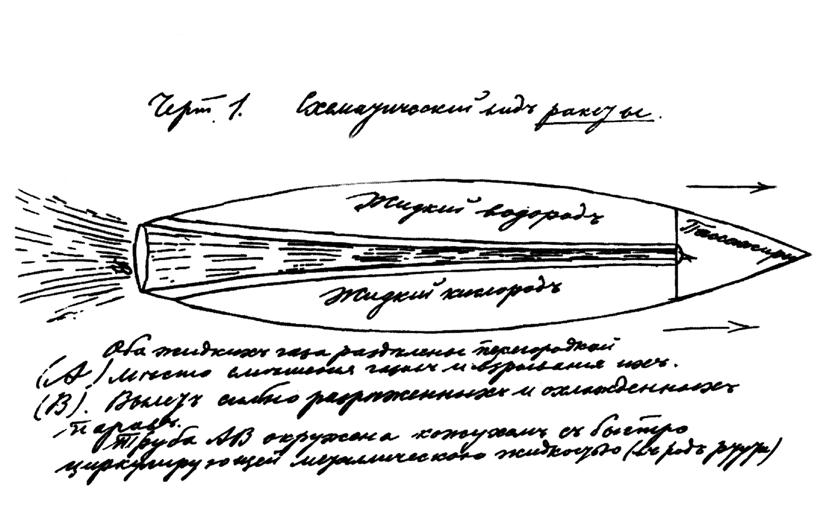 Черт. 1. Схематический видъ ракеты.
Жидкий водородъ
Пассажиры
В
А
Жидкий кислородъ
Оба жидкихъ газа разделены перегородкой
(А) Место смешения газовъ и взрывания ихъ.
(В). Вылетъ сильно разреженныхъ и охлажденныхъ
паровъ.
Труба АВ окружена кожухомъ съ быстро
циркулирующей металлической жидкостью (въ родѣ ртути)